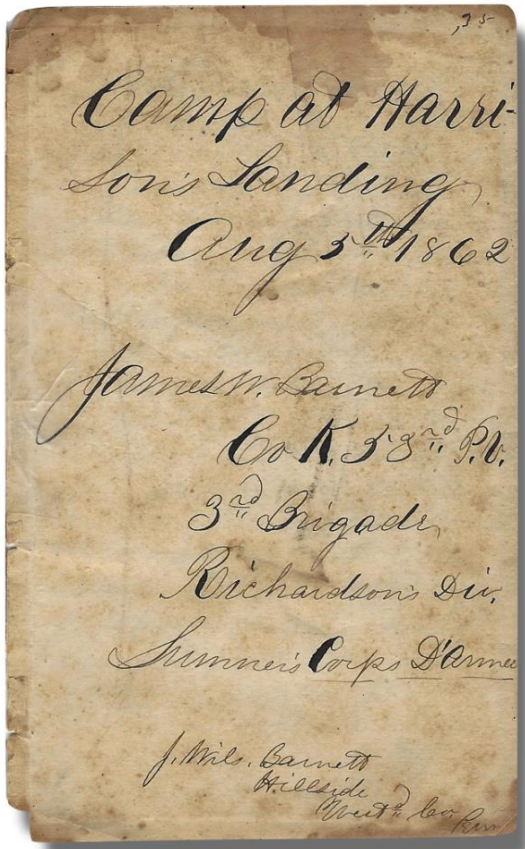 ,35
Camp at Harri-
son's Landing
Aug 5th 1862
James W. Barnett
Co K. 53rd P.V.
3rd Brigade
Richardson's Div.
Sumner's Corps D'armee
J. Wils. Barnett
Hillside
West'd Co
Penn